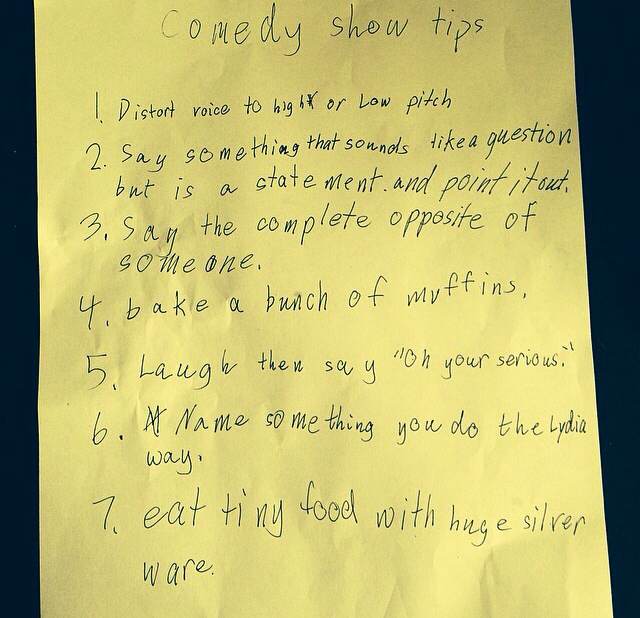 Comedy show tips
1. Distort voice to high or Low pitch
2. Say something that sounds like a question
but is a statement. and point it out.
3. Say the complete opposite of
someone.
4. bake a bunch of muffins.
5. Laugh then say "Oh your serious."
6. Name something you do the Lydia
way.
7. eat tiny food with huge silver
ware.